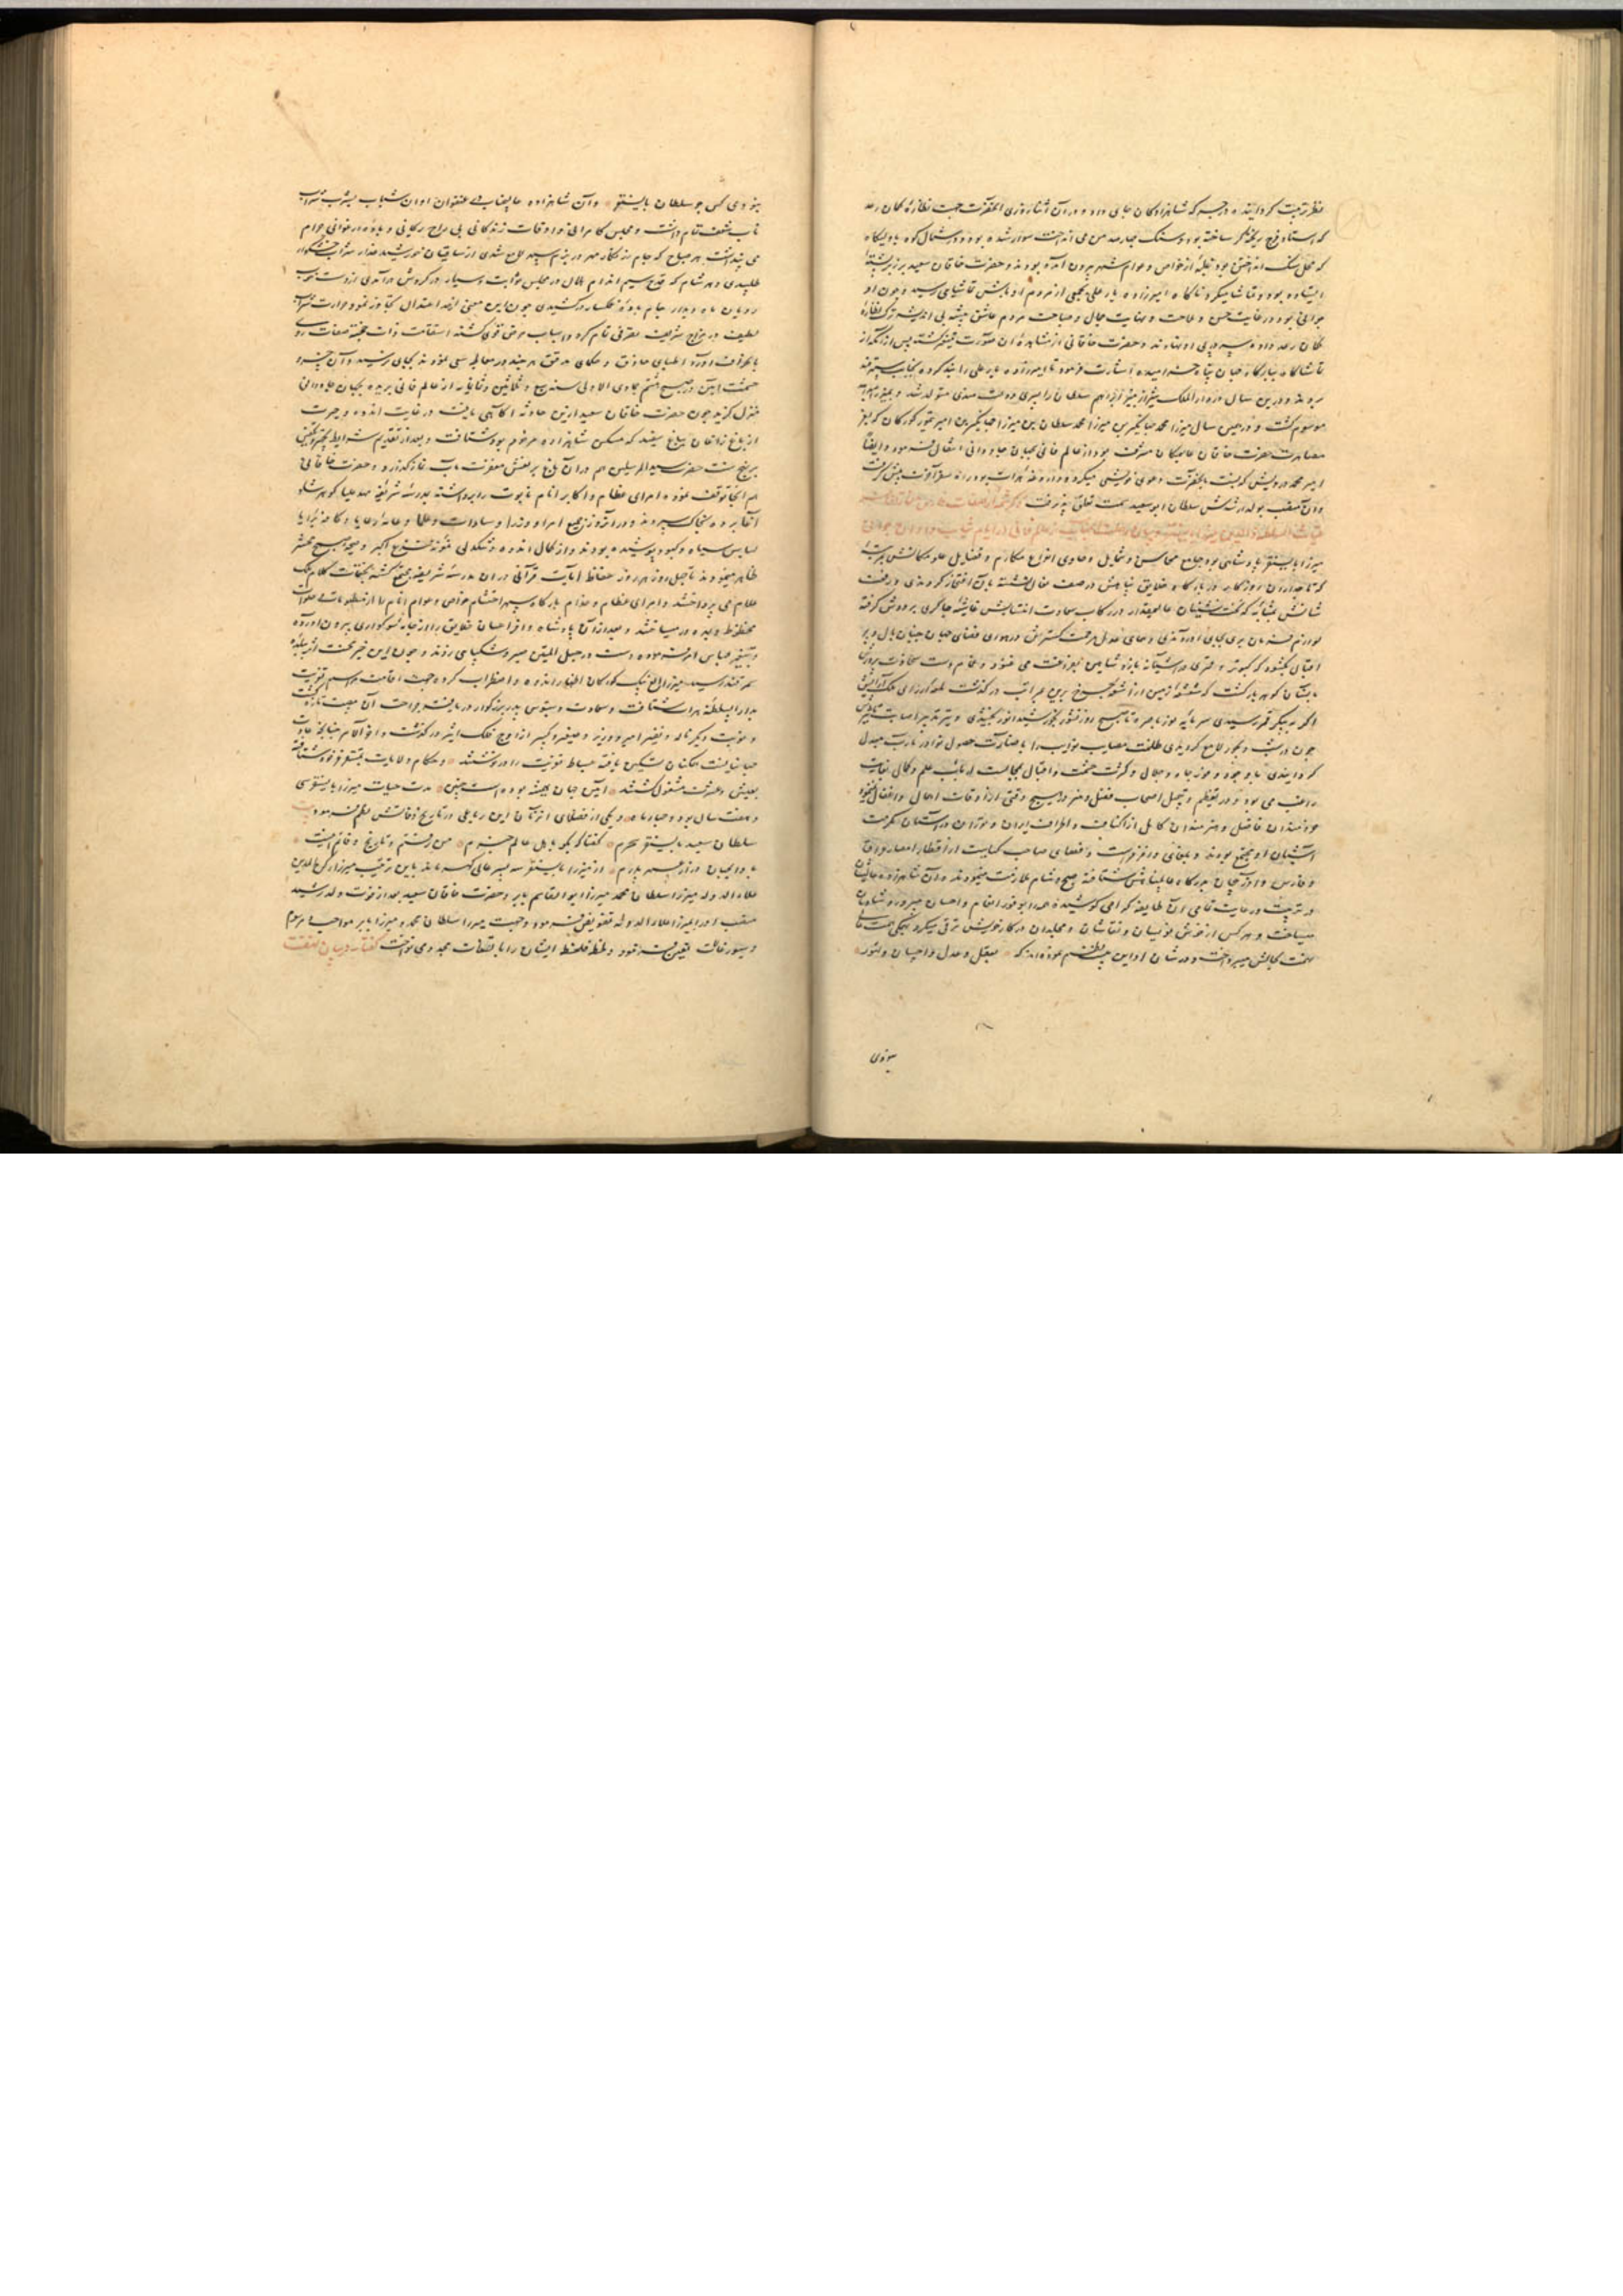 نظر تربیت گردانیده در جرکه شاهزادگان جای داد و در آن اثنا روزی آنحضرت جهت نظاره کمان رعد
که استاد فرخ ریخته‌گر ساخته بود و سنگ چهار صد من می انداخت سوار شده بود و در شمال کوه
که محل سنگ انداختن بود از خواص و عوام شهر بیرون آمده بودند و حضرت خاقان سعید بر زبر پشته
ایستاده بود و تماشا میکرد ناگاه امیرزاده یار علی بجمعی از مردم اوباش تماشای رسید و چون او
جوانی بود در غایت حسن و ملاحت و نهایت جمال و صباحت مردم عاشق پیشه بی اندیشه ترک نظاره
کمان رعد داده سر در پی او نهادند و حضرت خاقانی از مشاهده آن صورت پس از آنکه از
تماشاگاه ببارگاه خرامیده اشارت فرمود تا امیرزاده یار علی را بند کرده بجانب سمرقند
بردند و درین سال در دار الملک شیراز میرزا ابراهیم سلطان را پسری متولد شد
موسوم گشت و در همین سال میرزا محمد جهانگیر بن میرزا محمد سلطان بن میرزا جهانگیر بن امیر تیمور کورکان که بعز
مصاهرت حضرت خاقان مشرف بود از عالم فانی بجهان جاودانی انتقال فرمود و ایضا
امیر محمد درویش که نسبت بآنحضرت دعوی خویشی میکرد و داروغه هرات بود راه سفر آخرت پیش گرفت
و آن منصب بولد ارشدش سلطان ابو سعید سمت تعلق پذیرفت ذکر شمه از صفات
غیاث السلطنه والدین میرزا بایسنقر و بیان رحلت آنجناب از عالم فانی در ایام شباب و اوان جوانی
میرزا بایسنقر پادشاهی بود جامع محاسن شمایل و حاوی انواع مکارم و فضایل علو مکانش بمرتبه
که تاجداران روزگار در بارگاه خلایق پناهش در صف نعال نشسته بآن افتخار کردندی و رفعت
شانش بمثابه که تخت نشینان عالیمقدار در رکاب سعادت انتسابش غاشیه چاکری بر دوش گرفته
اقبالی بگشود که کبوتر و قمری در آشیانه باز و شاهین بفراغت می غنود و غمام دست سخاوت پرورش
چون در شب دیجور لامع گردیدی ظلمت مصایب نوایب را
گردانیدی با وجود وفور جاه و جلال و کثرت حشمت و اقبال بمجالست ارباب علم و کمال بغایت
راغب می بود و در تعظیم و تبجیل اصحاب فضل و هنر در هیچ وقتی از اوقات اهمال و اغفال نمینمود
خردمندان فاضل و هنرمندان کامل از اکناف و اطراف ایران و توران در آستان مکرمت
آشیان او مجتمع بودند و بلغای وافر فراست و فصحای صاحب کیاست از اقطار امصار عراق
و فارس و آذربیجان بدرگاه عالم پناهش شتافته صبح و شام ملازمت مینمودند و آن شاهزاده عالیشان
در تربیت و رعایت تمامی آن طایفه گرامی کوشیده همه را بوفور انعام و احسان مسرور و شادمان
میساخت و هر کس از خوش نویسان و نقاشان و مجلدان در کار خویش ترقی میکرد بهمگی همت عالی
همت بحالش میپرداخت و در شان او این بیت نظم نموده اند که بعقل و عدل و احسان و تهور
نبودی
نبودی کس چو سلطان بایسنقر و آن شاهزاده عالیجناب در عنفوان اوان شباب بشرب شراب
ناب شعف تمام داشت و مجلس کامرانی و اوقات زندگانی بی راح ریحانی و باده ارغوانی حرام
می پنداشت هر صباح که جام زرنگار مهر در بزم سپهر لامع شدی از ساقیان خورشید عذار شراب خوشگوار
طلبیدی و هر شام که قدح سیم اندام هلال در مجلس ثوابت و سیار در گردش در آمدی از دست خوب
رویان ماه دیدار جام باده خلار در کشیدی چون این معنی از حد اعتدال تجاوز نمود حرارت شراب
لطیف در مزاج شریف تصرفی تمام کرد و اسباب مرض قوی گشته استقامت ذات خجسته صفات روی
بانحراف آورد اطبای حاذق و حکمای مدقق هر چند در معالجه سعی نمودند بجایی نرسید و آن خسرو
حشمت آیین در صبح هفتم جمادی الاولی سنه سبع و ثلاثین و ثمانمایه از عالم فانی بریده بجهان جاودانی
منزل گزید چون حضرت خاقان سعید ازین حادثه آگاهی یافت در غایت اندوه و حیرت
از باغ زاغان بباغ سفید که مسکن شاهزاده مرحوم بود شتافت و بعد از تقدیم شرایط تجهیز و تکفین
بر نهج سنت حضرت سید المرسلین هم در آن باغ بر نعش مغفرت مآب نماز گذارد و حضرت خاقانی
هم آنجا توقف نموده امرای عظام و اکابر انام تابوت را برداشته بمدرسه شریفه مهد علیا گوهرشاد
آغا برده بخاک سپردند و در آنروز جمیع امرا و وزرا و سادات و علما و عامه رعایا و کافه برایا
لباس سیاه و کبود پوشیده بودند و از کمال اندوه و تنگدلی نمونه فزع اکبر و صبح محشر
ظاهر مینمودند تا چهل روز هر روز حفاظ آیات قرآنی در آن مدرسه شریفه مجتمع گشته بختمات کلام ملک
علام می پرداختند و امرای عظام و خدام بارگاه سپهر احتشام خواص و عوام انام را از
محظوظ و بهره ور میساختند و بعد از آن پادشاه وافر احسان خلایق را از جامه سوگواری بیرون آورده
و بتغییر لباس امر فرموده دست در حبل المتین صبر و شکیبایی زدند و چون این خبر محنت اثر ببلده
سمرقند رسید میرزا الغ بیک کورکان اظهار اندوه و اضطراب کرده جهت اقامت مراسم تعزیت
بدار السلطنه هراة شتافت و سعادت دستبوس پدر بزرگوار دریافته جراحت آن مصیبت تازه گشت
و نوبت دیگر ناله و نفیر امیر و وزیر و صغیر و کبیر از اوج فلک اثیر در گذشت و آخر الامر چنانچه عادت
جهانیانست همگنان تسکین یافته بساط تعزیت را در نوشتند و حکام ولایات بمستقر خود شتافته
بعیش و عشرت مشغول گشتند آیین جهان همیشه بوده است چنین مدت حیات میرزا بایسنقر سی
و هفت سال بود و چهار ماه و یکی از فضلای آنزمان این رباعی در تاریخ وفاتش نظم فرمود
سلطان سعید بایسنقر سحرم گفتا که بگو باهل عالم خبرم من رفتم و تاریخ وفاتم اینست
بادا بجهان دراز عمر پدرم از میرزا بایسنقر سه پسر عالی گهر ماند باین ترتیب میرزا رکن الدین
علاء الدوله میرزا سلطان محمد میرزا ابو القاسم بابر و حضرت خاقان سعید بعد از فوت ولد رشید
منصب او را بمیرزا علاء الدوله تفویض فرمود و جهت میرزا سلطان محمد و میرزا بابر مواجب مرسوم
و سیورغالات تعیین فرمود و لحظه فلحظه ایشان را بالتفات مجدد می نواخت گفتار در بیان نهضت